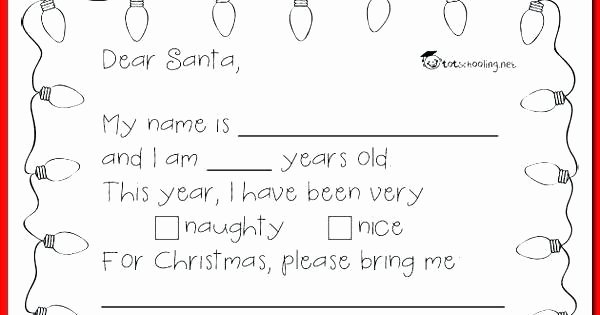 Dear Santa,
totschooling.net
My name is
and I am years old.
This year, I have been very
naughty nice
For Christmas, please bring me: